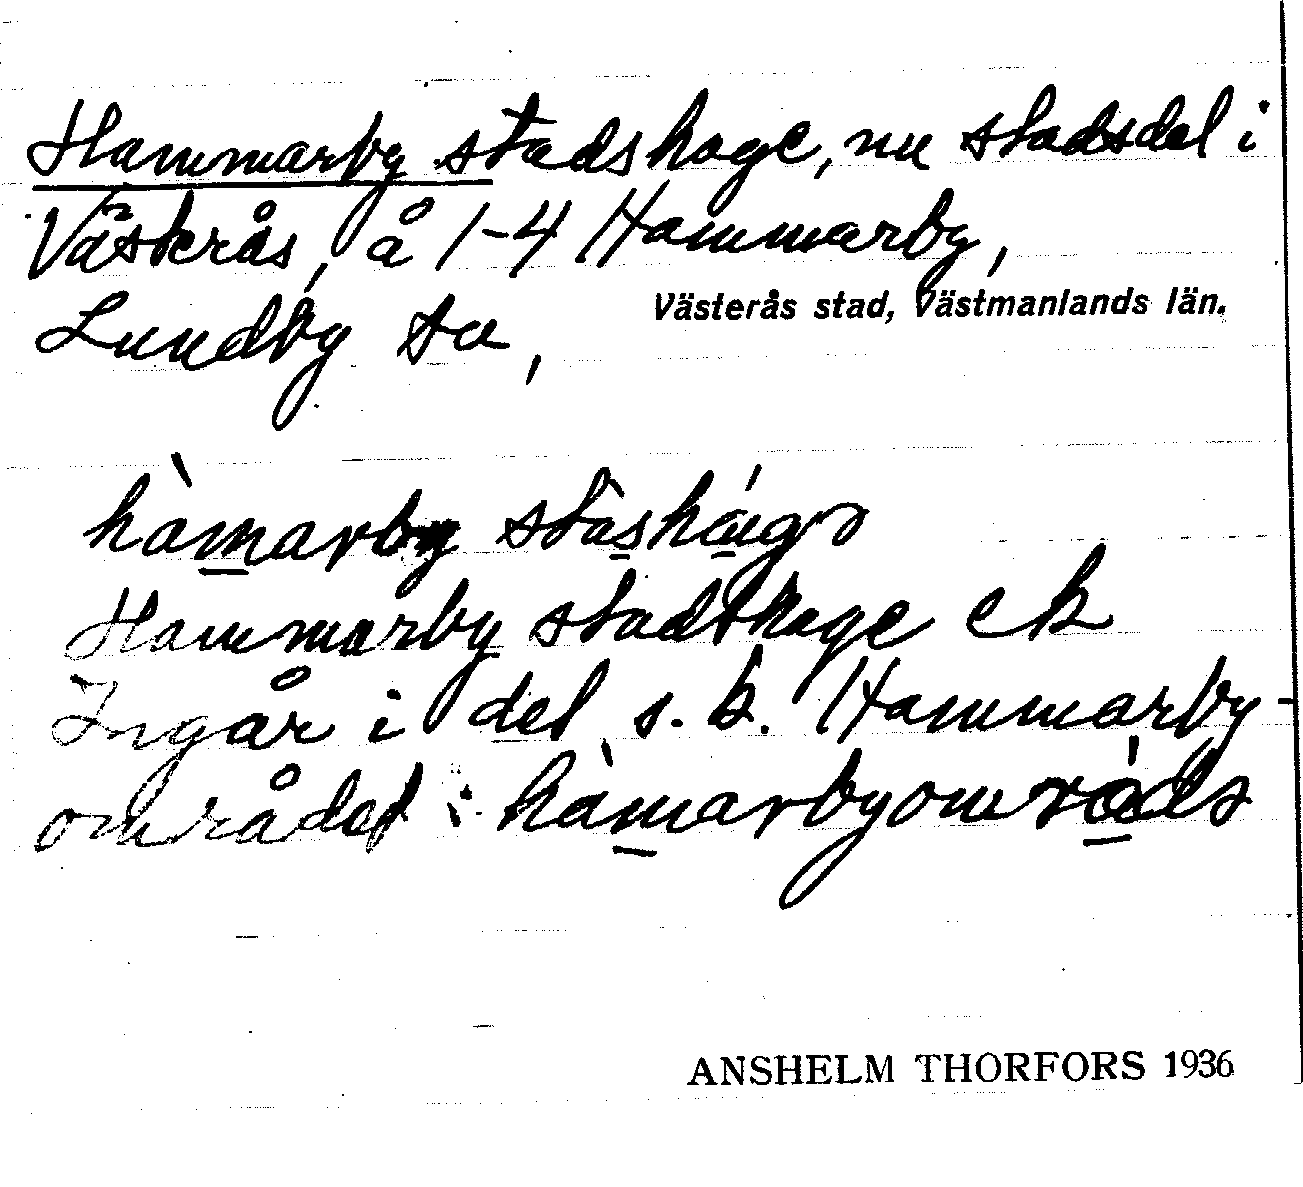 Hammarby stadshage, nu stadsdel i
Västerås, å 1-4 Hammarby,
Lundby sn,
Västerås stad, Västmanlands län.
hàmarby stàshága
Hammarby stadshage ek
Ingår i del s. k. Hammarby-
området: hàmarbyområds
ANSHELM THORFORS 1936